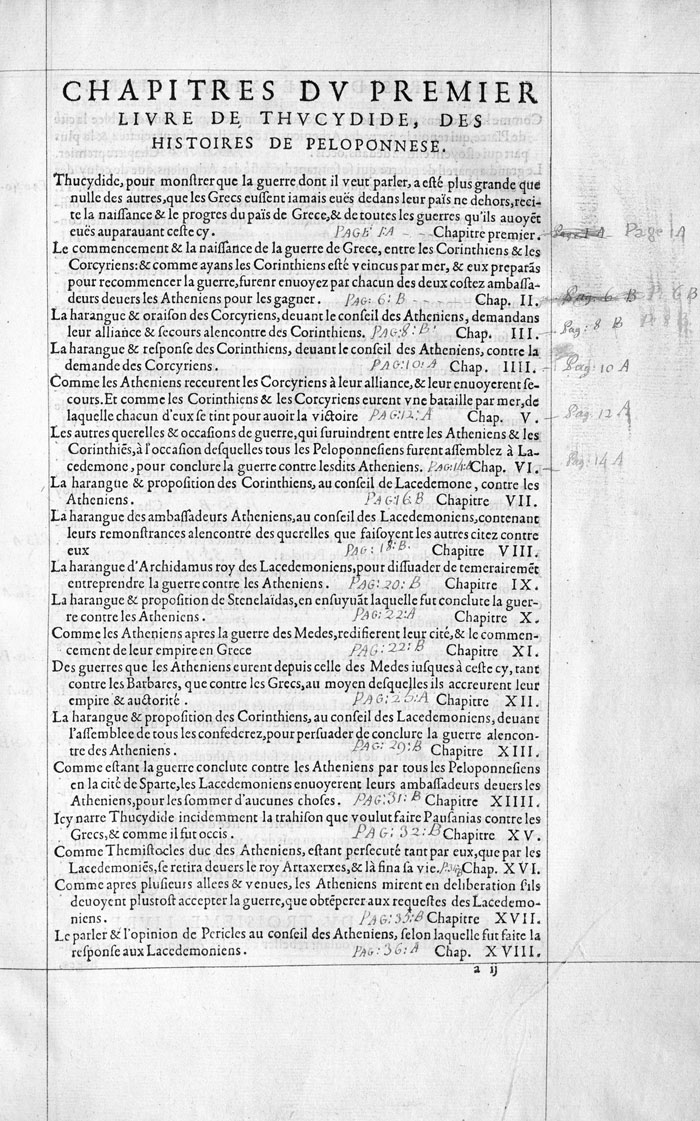 CHAPITRES DV PREMIER
LIVRE DE THVCYDIDE, DES
HISTOIRES DE PELOPONNESE.
Thucydide, pour monſtrer que la guerre dont il veut parler, a eſté plus grande que
nulle des autres, que les Grecs euſſent iamais euës dedans leur païs ne dehors, reci-
te la naiſſance & le progres du païs de Grece, & de toutes les guerres qu'ils auoyẽt
euës auparauant ceſte cy. PAGE 1A - - - Chapitre premier. Page 1A
Le commencement & la naiſſance de la guerre de Grece, entre les Corinthiens & les
Corcyriens: & comme ayans les Corinthiens eſté veincus par mer, & eux preparãs
pour recommencer la guerre, furenr enuoyez par chacun des deux coſtez ambaſſa-
deurs deuers les Atheniens pour les gagner. PAG: 6: B Chap. II. Pag. 6 B P. 6 B
La harangue & oraiſon des Corcyriens, deuant le conſeil des Atheniens, demandans
leur alliance & ſecours alencontre des Corinthiens. PAG: 8: B Chap. III. Pag: 8 B P: 8 B
La harangue & reſponſe des Corinthiens, deuant le conſeil des Atheniens, contre la
demande des Corcyriens. PAG: 10: A Chap. IIII. Pag: 10 A
Comme les Atheniens receurent les Corcyriens à leur alliance, & leur enuoyerent ſe-
cours. Et comme les Corinthiens & les Corcyriens eurent vne bataille par mer, de
laquelle chacun d'eux ſe tint pour auoir la victoire PAG: 12: A Chap. V. Pag. 12 A
Les autres querelles & occaſions de guerre, qui ſuruindrent entre les Atheniens & les
Corinthiẽs, à l'occaſion deſquelles tous les Peloponneſiens furent aſſemblez à La-
cedemone, pour conclure la guerre contre leſdits Atheniens. PAG: 14: A Chap. VI. Pag: 14 A
La harangue & propoſition des Corinthiens, au conſeil de Lacedemone, contre les
Atheniens. PAG: 16: B Chapitre VII.
La harangue des ambaſſadeurs Atheniens, au conſeil des Lacedemoniens, contenant
leurs remonſtrances alencontre des querelles que faiſoyent les autres citez contre
eux PAG: 18: B. Chapitre VIII.
La harangue d'Archidamus roy des Lacedemoniens, pour diſſuader de temerairemẽt
entreprendre la guerre contre les Atheniens. PAG: 20: B Chapitre IX.
La harangue & propoſition de Stenelaïdas, en enſuyuãt laquelle fut conclute la guer-
re contre les Atheniens. PAG: 22: A Chapitre X.
Comme les Atheniens apres la guerre des Medes, redifierent leur cité, & le commen-
cement de leur empire en Grece PAG: 22: B Chapitre XI.
Des guerres que les Atheniens eurent depuis celle des Medes iuſques à ceſte cy, tant
contre les Barbares, que contre les Grecs, au moyen deſquelles ils accreurent leur
empire & auctorité. PAG: 25: A Chapitre XII.
La harangue & propoſition des Corinthiens, au conſeil des Lacedemoniens, deuant
l'aſſemblee de tous les confederez, pour perſuader de conclure la guerre alencon-
tre des Atheniens. PAG: 29: B Chapitre XIII.
Comme eſtant la guerre conclute contre les Atheniens par tous les Peloponneſiens
en la cité de Sparte, les Lacedemoniens enuoyerent leurs ambaſſadeurs deuers les
Atheniens, pour les ſommer d'aucunes choſes. PAG: 31: B Chapitre XIIII.
Icy narre Thucydide incidemment la trahiſon que voulut faire Pauſanias contre les
Grecs, & comme il fut occis. PAG: 32: B Chapitre XV.
Comme Themiſtocles duc des Atheniens, eſtant perſecuté tant par eux, que par les
Lacedemoniẽs, ſe retira deuers le roy Artaxerxes, & là fina ſa vie. Chap. XVI.
Comme apres pluſieurs allees & venues, les Atheniens mirent en deliberation s'ils
deuoyent pluſtoſt accepter la guerre, que obtẽperer aux requeſtes des Lacedemo-
niens. PAG: 35: B Chapitre XVII.
Le parler & l'opinion de Pericles au conſeil des Atheniens, ſelon laquelle fut faite la
reſponſe aux Lacedemoniens. PAG: 36: A Chap. XVIII.
a ij